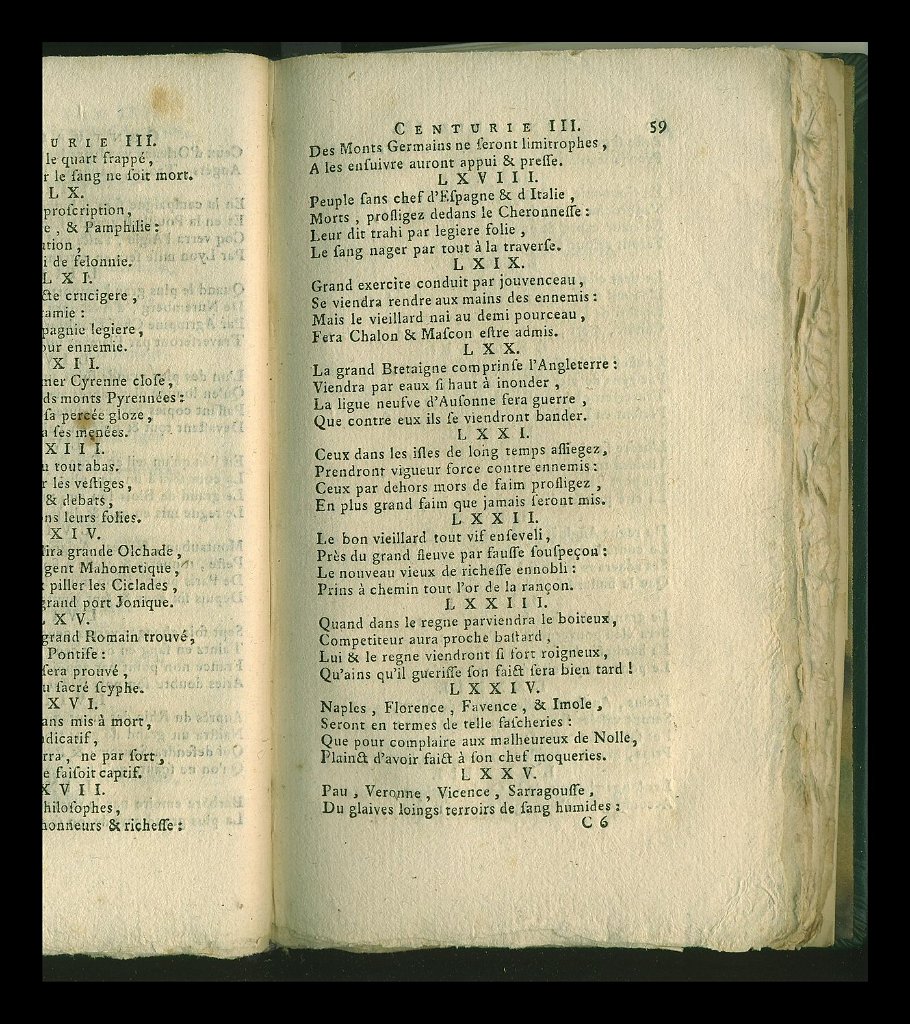 URIE III.
le quart frappé,
r le ſang ne ſoit mort.
LX.
proſcription,
e, & Pamphilie:
tion,
i de felonnie.
LXI.
cte crucigere,
ramie:
pagnie legiere,
our ennemie.
XII.
mer Cyrenne cloſe,
ds monts Pyrennées:
ſa percée gloze,
a ſes menées.
XIII.
u tout abas.
r les veſtiges,
& debats,
ns leurs folies.
XIV.
ſira grande Olchade,
gent Mahometique,
piller les Ciclades,
grand port Jonique.
XV.
grand Romain trouvé,
Pontife:
ſera prouvé,
u ſacré ſcyphe.
XVI.
ans mis à mort,
ndicatif,
rra, ne par ſort,
e faiſoit captif.
XVII.
hiloſophes,
honneurs & richeſſe:
CENTURIE III. 59
Des Monts Germains ne ſeront limitrophes,
A les enſuivre auront appui & preſſe.
LXVIII.
Peuple ſans chef d'Eſpagne & d Italie,
Morts, profligez dedans le Cheronneſſe:
Leur dit trahi par legiere folie,
Le ſang nager par tout à la traverſe.
LXIX.
Grand exercite conduit par jouvenceau,
Se viendra rendre aux mains des ennemis:
Mais le vieillard nai au demi pourceau,
Fera Chalon & Maſcon eſtre admis.
LXX.
La grand Bretaigne comprinſe l'Angleterre:
Viendra par eaux ſi haut à inonder,
La ligue neufve d'Auſonne fera guerre,
Que contre eux ils ſe viendront bander.
LXXI.
Ceux dans les iſles de long temps aſſiegez,
Prendront vigueur force contre ennemis:
Ceux par dehors mors de faim profligez,
En plus grand faim que jamais ſeront mis.
LXXII.
Le bon vieillard tout vif enſeveli,
Près du grand fleuve par fauſſe ſouſpeçon:
Le nouveau vieux de richeſſe ennobli:
Prins à chemin tout l'or de la rançon.
LXXIII.
Quand dans le regne parviendra le boiteux,
Competiteur aura proche baſtard,
Lui & le regne viendront ſi fort roigneux,
Qu'ains qu'il gueriſſe ſon faict ſera bien tard!
LXXIV.
Naples, Florence, Favence, & Imole,
Seront en termes de telle faſcheries:
Que pour complaire aux malheureux de Nolle,
Plainct d'avoir faict à ſon chef moqueries.
LXXV.
Pau, Veronne, Vicence, Sarragouſſe,
Du glaives loings terroirs de ſang humides:
C 6